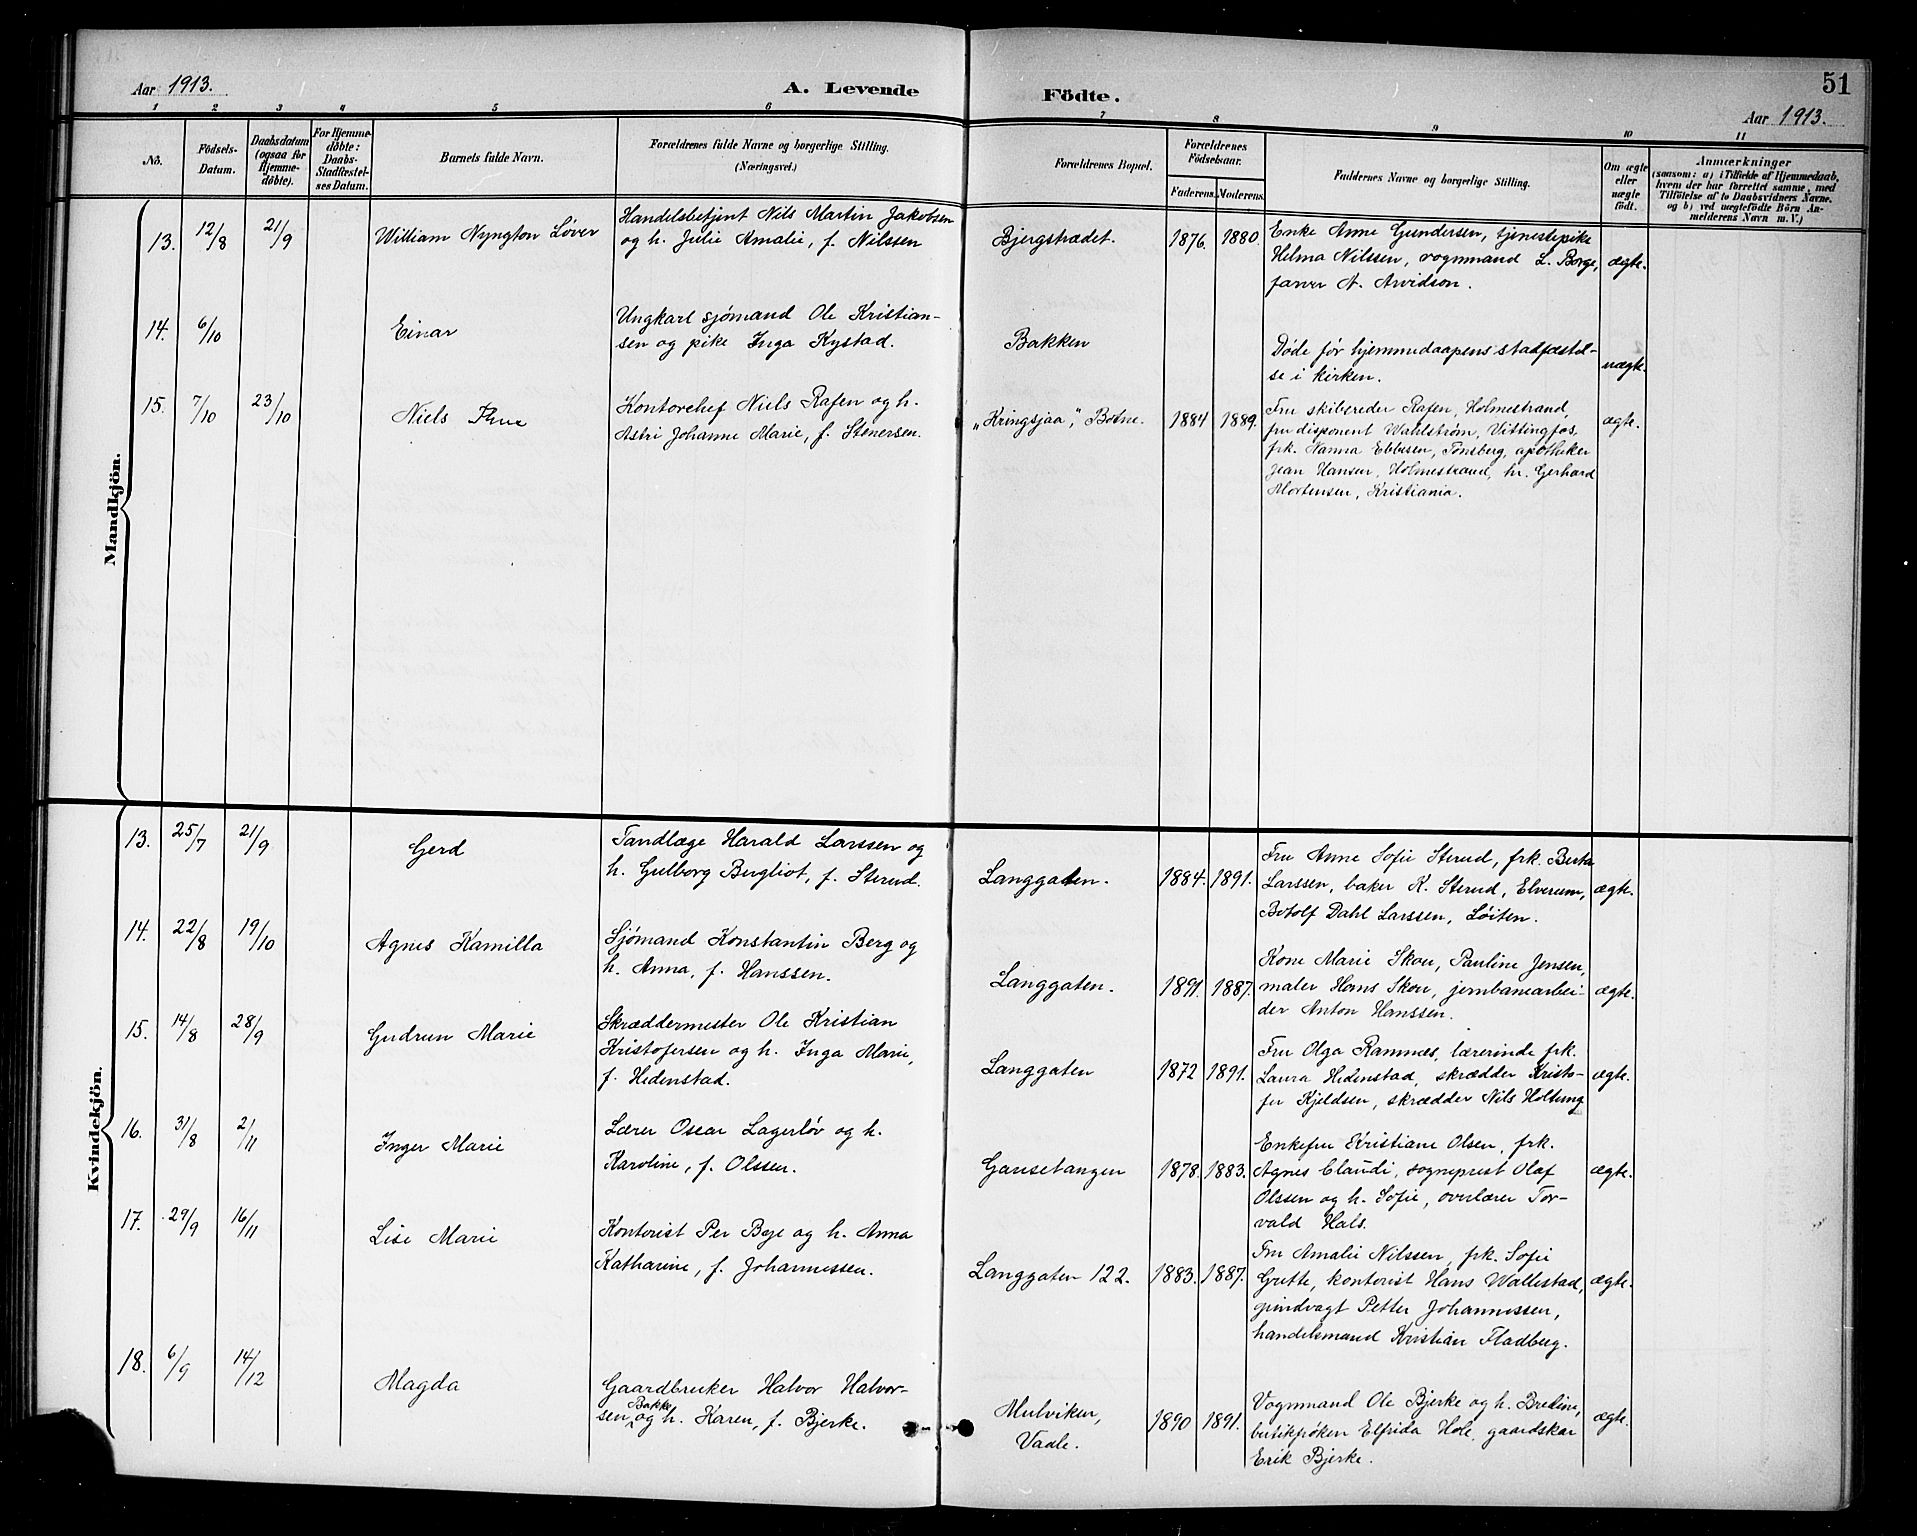 51
Aar 1913.
A. Levende
Födte.
Aar 1913.
1 2 3 4 5 6 7 8 9 10 11
No.
Födsels-
Datum.
Daabsdatum
(ogsaa for
Hjemme-
döbte).
For Hjemme-
döbte:
Daabs-
Stadfæstel-
ses Datum.
Barnets fulde Navn.
Forældrenes fulde Navne og borgerlige Stilling.
(Næringsvei.)
Forældrenes Bopæl.
Forældrenes
Födselsaar.
Faderens. Moderens.
Faddernes Navne og borgerlige Stilling.
Om ægte
eller
uægte
födt.
Anmærkninger
(saasom: a) i Tilfælde af Hjemmedaab,
hvem der har forrettet samme, med
Tilföielse af to Daabsvidners Navne.
og b) ved uægtefödte Börn An-
melderens Navn m. V.)
Mandkjön.
13. 12/8 21/9 William Nyngton Løver
Handelsbetjent Nils Martin Jakobsen
og h. Julie Amalie, f. Nilssen
Bjergstrædet. 1876. 1880.
Enke Anne Gundersen, tjenestepike
Helma Nilssen, vognmand L. Borge,
farver A. Arvidson.
ægte.
14. 6/10 Einar
Ungkarl sjømand Ole Kristian-
sen og pike Inga Kystad.
Bakken
Døde før hjemmedaapens stadfæstel-
se i kirken.
uægte.
15. 7/10 23/10 Niels Thue
Kontorchef Niels Rafen og h.
Astri Johanne Marie, f. Stenersen.
"Kringsjaa", Botne. 1884 1889.
Fru skibsreder Rafen, Holmestrand,
fru disponent Wahlstrøm, Vittingfos,
frk. Nanna Ebbesen, Tønsberg, apotheker
Jean Hansen, Holmestrand, hr. Gerhard
Mortensen, Kristiania.
ægte.
Kvindekjön.
13. 25/7 21/9 Gerd
Tandlæge Harald Larssen og
h. Gulborg Bergliot, f. Sterud.
Langgaten. 1884. 1891.
Fru Anne Sofie Sterud, frk. Berta
Larssen, baker K. Sterud, Elverum,
Botolf Dahl Larssen, Løiten.
ægte.
14. 22/8 19/10 Agnes Kamilla
Sjømand Konstantin Berg og
h. Anna, f. Hanssen.
Langgaten. 1891. 1887.
Kone Marie Skou, Pauline Jensen,
maler Hans Skou, jernbanearbei-
der Anton Hanssen.
ægte.
15. 14/8 28/9 Gudrun Marie
Skræddermester Ole Kristian
Kristofersen og h. Inga Marie,
f. Hedenstad.
Langgaten 1872 1891.
Fru Olga Ramnæs, lærerinde frk.
Laura Hedenstad, skrædder Kristo-
fer Kjeldsen, skrædder Nils Holtung
ægte.
16. 31/8 2/11 Inger Marie
Lærer Oscar Lagerløv og h.
Karoline, f. Olssen.
Gausetangen 1878. 1883.
Enkefru Kristiane Olsen, frk.
Agnes Claudi, sogneprest Olaf
Olssen og h. Sofie, overlærer Tor-
vald Hals.
ægte.
17. 29/9 16/11 Lise Marie
Kontorist Per Bye og h. Anna
Katharine, f. Johannessen.
Langgaten 122. 1883. 1887.
Fru Amalie Nilssen, frk. Sofie
Grette, kontorist Hans Wallestad,
grindvagt Petter Johannessen,
handelsmand Kristian Fladberg.
ægte.
18. 6/9 14/12 Magda
Gaardbruker Halvor Halvor-
sen Bakke og h. Karen, f. Bjerke.
Mulviken,
Vaale.
1890 1891.
Vognmand Ole Bjerke og h. Bredine,
butikfrøken Elfrida Hole, gaardskar
Erik Bjerke.
ægte.